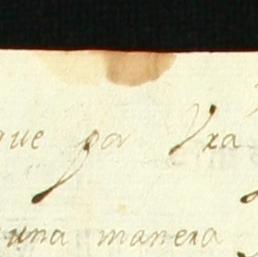 que por Vxa
una manera